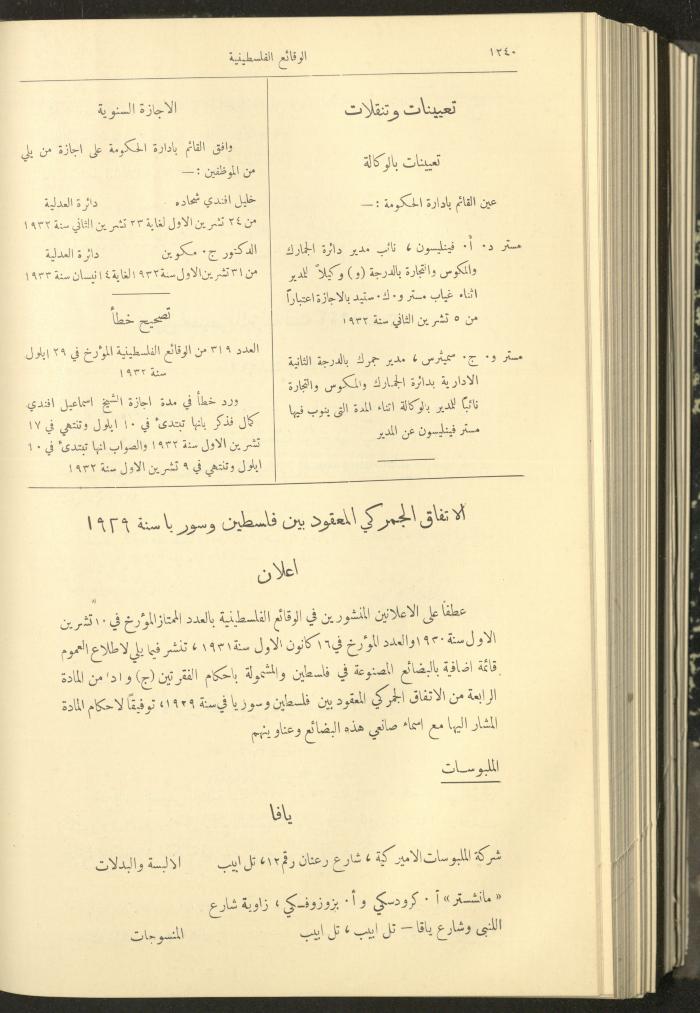 ١٢٤٠
الوقائع الفلسطينية
تعيينات وتنقلات
تعيينات بالوكالة
عين القائم بادارة الحكومة :—
مستر د٠ أ٠ فينليسون ، نائب مدير دائرة الجمارك
والمكوس والتجارة بالدرجة (و) وكيلاً للمدير
اثناء غياب مستر و٠ك٠ستيد بالاجازة اعتباراً
من ٥ تشرين الثاني سنة ١٩٣٢
مستر و٠ ج٠ سميثرس ، مدير جمرك بالدرجة الثانية
الادارية بدائرة الجمارك والمكوس والتجارة
نائباً للمدير بالوكالة اثناء المدة التي ينوب فيها
مستر فينليسون عن المدير
الاجازة السنوية
وافق القائم بادارة الحكومة على اجازة من يلي
من الموظفين :—
خليل افندي شحاده دائرة العدلية
من ٢٤ تشرين الاول لغاية ٢٣ تشرين الثاني سنة ١٩٣٢
الدكتور ج٠ مكوين دائرة العدلية
من ٣١ تشرين الاول سنة ١٩٣٢ لغاية ١٤ نيسان سنة ١٩٣٣
تصحيح خطأ
العدد ٣١٩ من الوقائع الفلسطينية المؤرخ في ٢٩ ايلول
سنة ١٩٣٢
ورد خطأ في مدة اجازة الشيخ اسماعيل افندي
كمال فذكر بانها تبتدئ في ١٠ ايلول وتنتهي في ١٧
تشرين الاول سنة ١٩٣٢ والصواب انها تبتدئ في ١٠
ايلول وتنتهي في ٩ تشرين الاول سنة ١٩٣٢
الاتفاق الجمركي المعقود بين فلسطين وسوريا سنة ١٩٢٩
اعلان
عطفاً على الاعلانين المنشورين في الوقائع الفلسطينية بالعدد الممتاز المؤرخ في ١٠ تشرين
الاول سنة ١٩٣٠ والعدد المؤرخ في ١٦ كانون الاول سنة ١٩٣١ ، تنشر فيما يلي لاطلاع العموم
قائمة اضافية بالبضائع المصنوعة في فلسطين والمشمولة باحكام الفقرتين (ج) و (د) من المادة
الرابعة من الاتفاق الجمركي المعقود بين فلسطين وسوريا في سنة ١٩٢٩، توفيقاً لاحكام المادة
المشار اليها مع اسماء صانعي هذه البضائع وعناوينهم
الملبوسات
يافا
شركة الملبوسات الاميركية ، شارع رعنان رقم ١٢، تل ابيب الالبسة والبدلات
«مانشستر» آ٠ كرودسكي و أ٠ بزوزوفسكي ، زاوية شارع
اللنبي وشارع يافا — تل ابيب ، تل ابيب المنسوجات